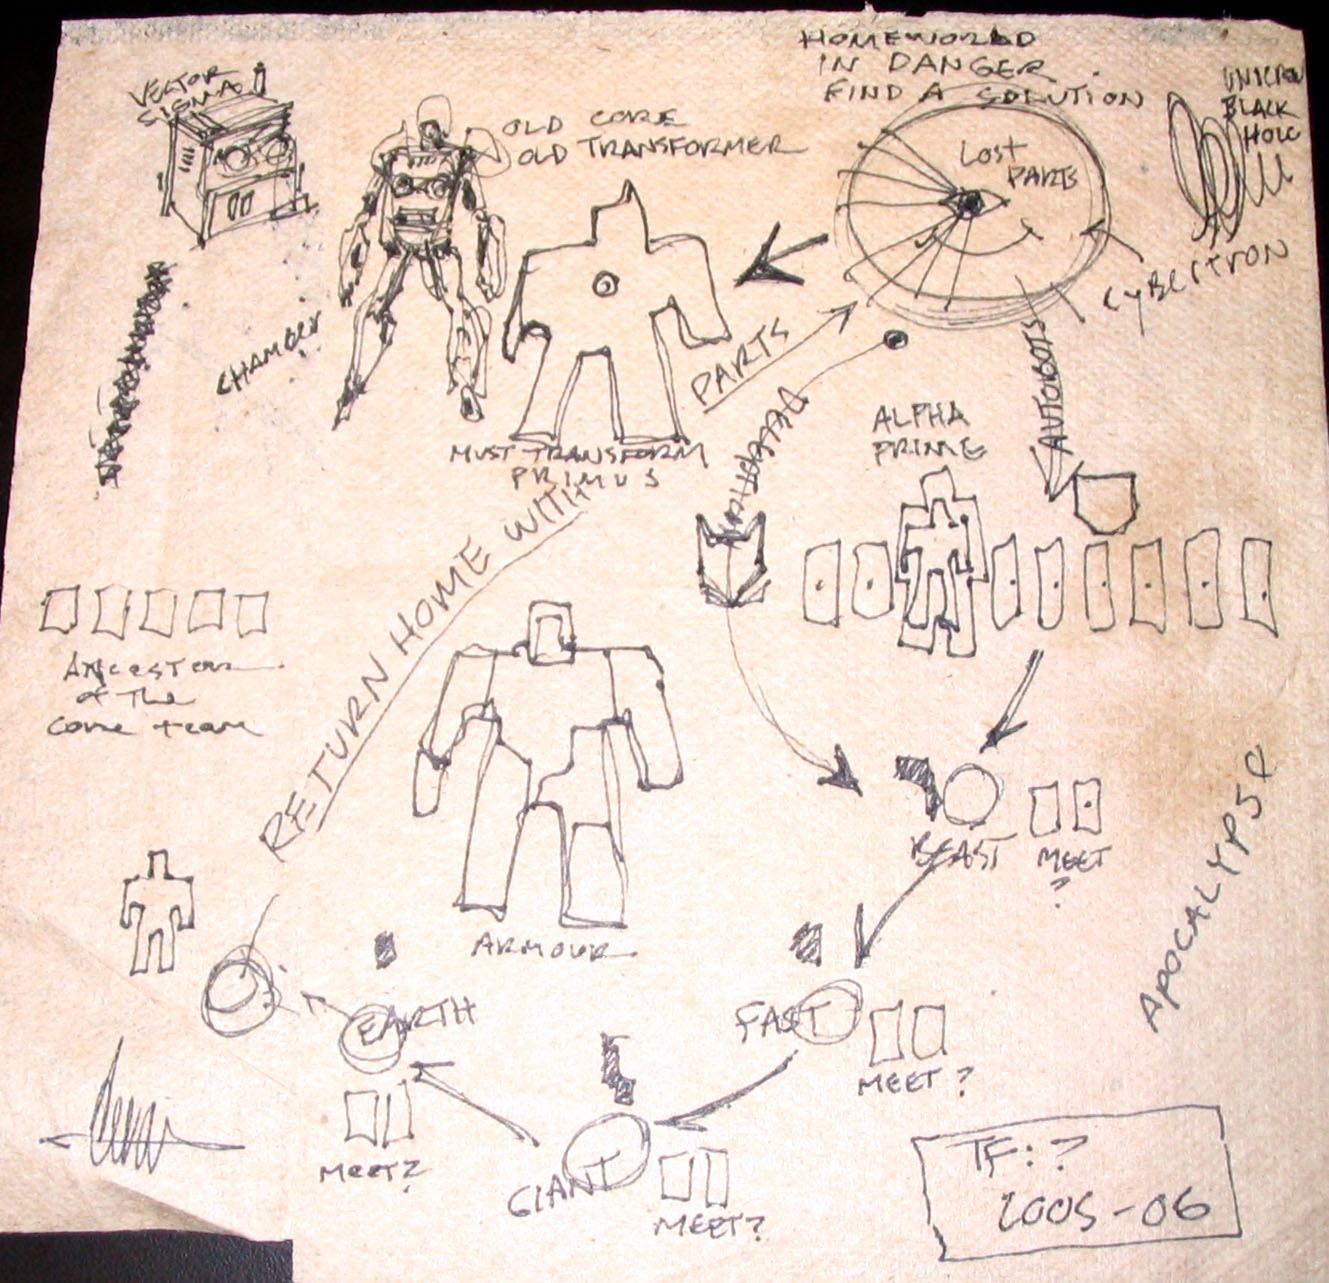 HOMEWORLD
IN DANGER
FIND A SOLUTION
UNICRON
BLACK
HOLE
VECTOR
SIGMA
OLD CORE
OLD TRANSFORMER
LOST
PARTS
CYBERTRON
CHAMBER
MUST TRANSFORM
PRIMUS
PARTS
AUTOBOTS
ALPHA
PRIME
RETURN HOME WITH
ANCESTORS
of The
Core team
ARMOUR
BEAST
MEET
?
APOCALYPSE
FAST
MEET?
EARTH
MEET?
GIANT
MEET?
TF:?
2005-06